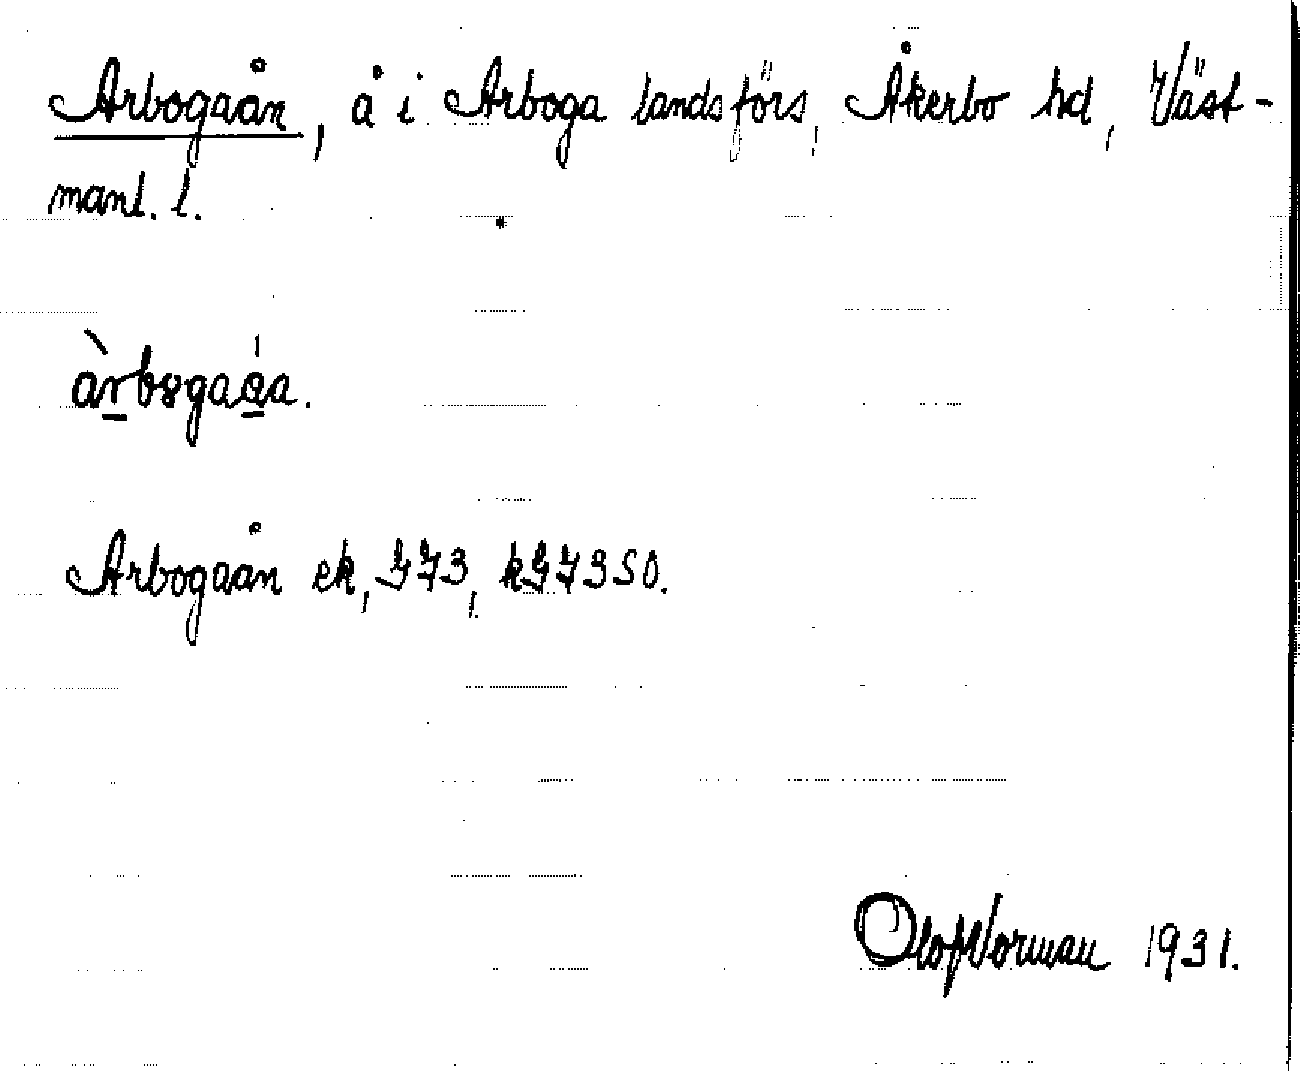 Arbogaån, å i Arboga landsförs, Åkerbo hd, Väst-
manl. l.
Arbogaån ek, G73, kG73SO.
Olof Norman 1931.